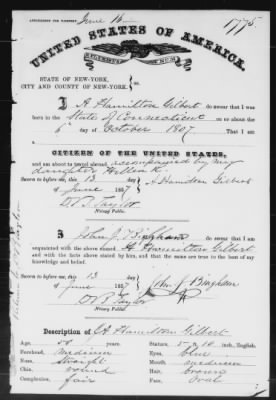 June 16
1775
UNITED STATES OF AMERICA.
STATE OF NEW-YORK,
CITY AND COUNTY OF NEW-YORK.
I A Hamilton Gilbert do swear that I was
born in the State of Connecticut on or about the
6 day of October 1807 That I am
a
CITIZEN OF THE UNITED STATES,
and am about to travel abroad, accompanied by my
daughter
Sworn to before me, this 13
day of June 1867
A Hamilton Gilbert
D. P. Taylor
Notary Public.
I John J Bingham do swear that I am
acquainted with the above named A Hamilton Gilbert
and with the facts above stated by him, and that the same are true to the best of my
knowledge and belief.
Sworn to before me, this 13
day of June 1867
John J Bingham
D P Taylor
Notary Public.
Description of A Hamilton Gilbert
Age, 59 years. Stature, 5 " 10 inch, English.
Forehead, medium Eyes, blue
Nose, straight Mouth, medium
Chin, round Hair, brown
Complexion, fair Face, Oval